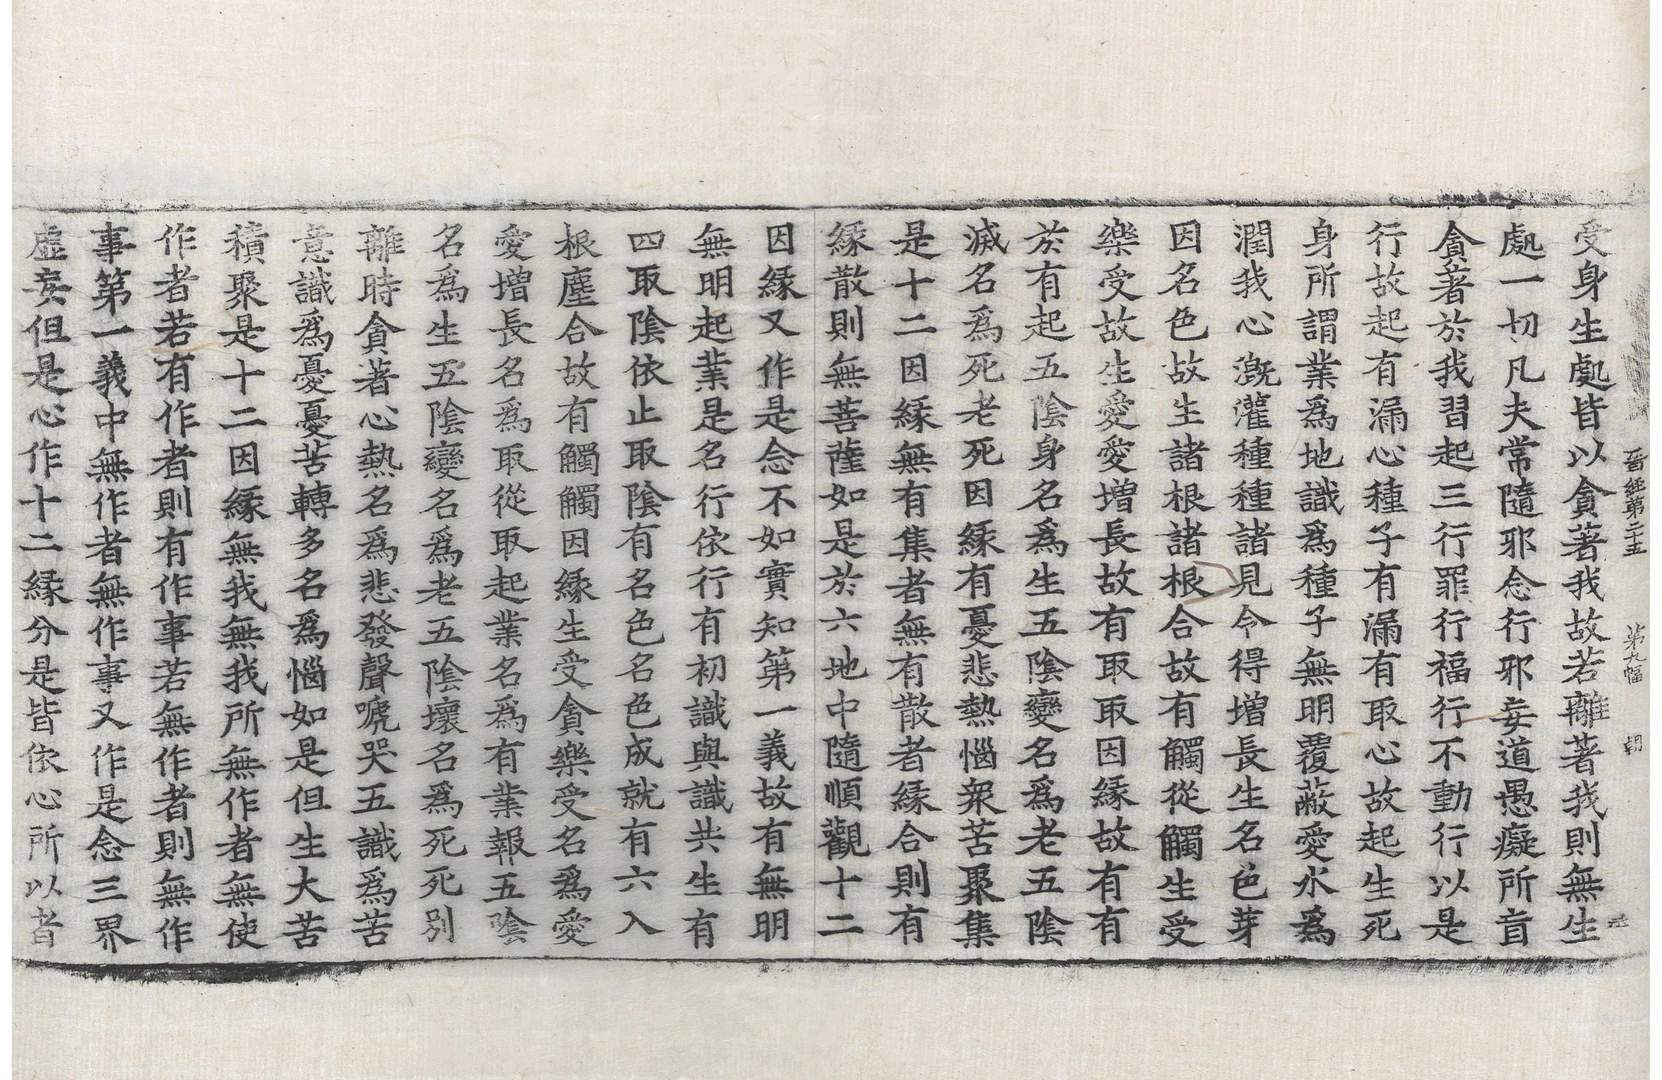 晉經第二十五 第九幅 朝
受身生處皆以貪著我故若離著我則無生
處一切凡夫常隨邪念行邪妄道愚癡所盲
貪著於我習起三行罪行福行不動行以是
行故起有漏心種子有漏有取心故起生死
身所謂業為地識為種子無明覆蔽愛水為
潤我心溉灌種種諸見令得增長生名色芽
因名色故生諸根諸根合故有觸從觸生受
樂受故生愛愛增長故有取取因緣故有有
於有起五陰身名為生五陰變名為老五陰
滅名為死老死因緣有憂悲熱惱眾苦聚集
是十二因緣無有集者無有散者緣合則有
緣散則無菩薩如是於六地中隨順觀十二
因緣又作是念不如實知第一義故有無明
無明起業是名行依行有初識與識共生有
四取陰依止取陰有名色名色成就有六入
根塵合故有觸觸因緣生受貪樂受名為愛
愛增長名為取從取起業名為有業報五陰
名為生五陰變名為老五陰壞名為死死別
離時貪著心熱名為悲發聲㗖哭五識為苦
意識為憂憂苦轉多名為惱如是但生大苦
積聚是十二因緣無我無我所無作者無使
作者若有作者則有作事若無作者則無作
事第一義中無作者無作事又作是念三界
虛妄但是心作十二緣分是皆依心所以者